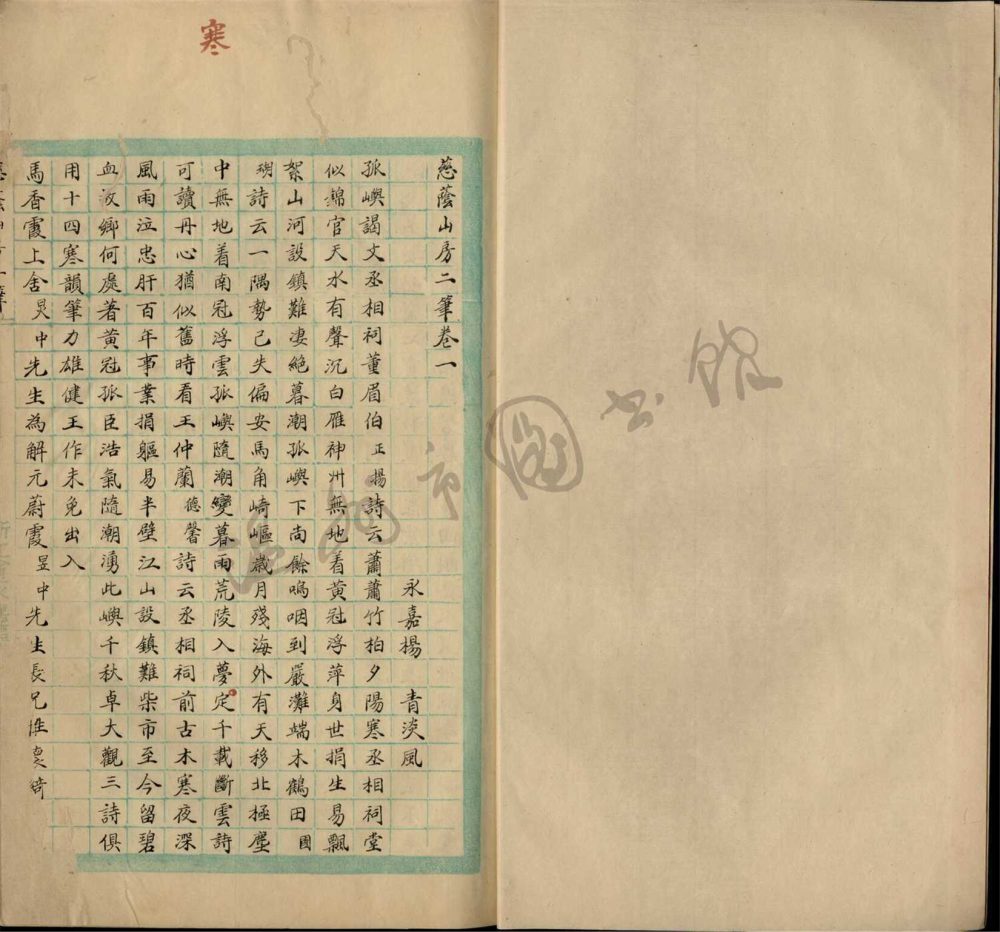 寒
慈蔭山房二筆卷一
永嘉楊　青淡風
孤嶼謁文丞相祠董眉伯正揚詩云蕭蕭竹柏夕陽寒丞相祠堂
似錦官天水有聲沉白雁神州無地着黃冠浮萍身世捐生易飄
絮山河設鎮難淒絕暮潮孤嶼下尚餘嗚咽到嚴灘端木鶴田國
瑚詩云一隅勢已失偏安馬角崎嶇歲月殘海外有天移北極塵
中無地着南冠浮雲孤嶼隨潮變暮雨荒陵入夢定千載斷雲詩
可讀丹心猶似舊時看王仲蘭德馨詩云丞相祠前古木寒夜深
風雨泣忠肝百年事業捐軀易半壁江山設鎮難柴市至今留碧
血故鄉何處著黃冠孤臣浩氣隨潮湧此嶼千秋卓大觀三詩俱
用十四寒韻筆力雄健王作未免出入
馬香霞上舍炅中先生為解元蔚霞昱中先生長兄性
溫州市圖書館